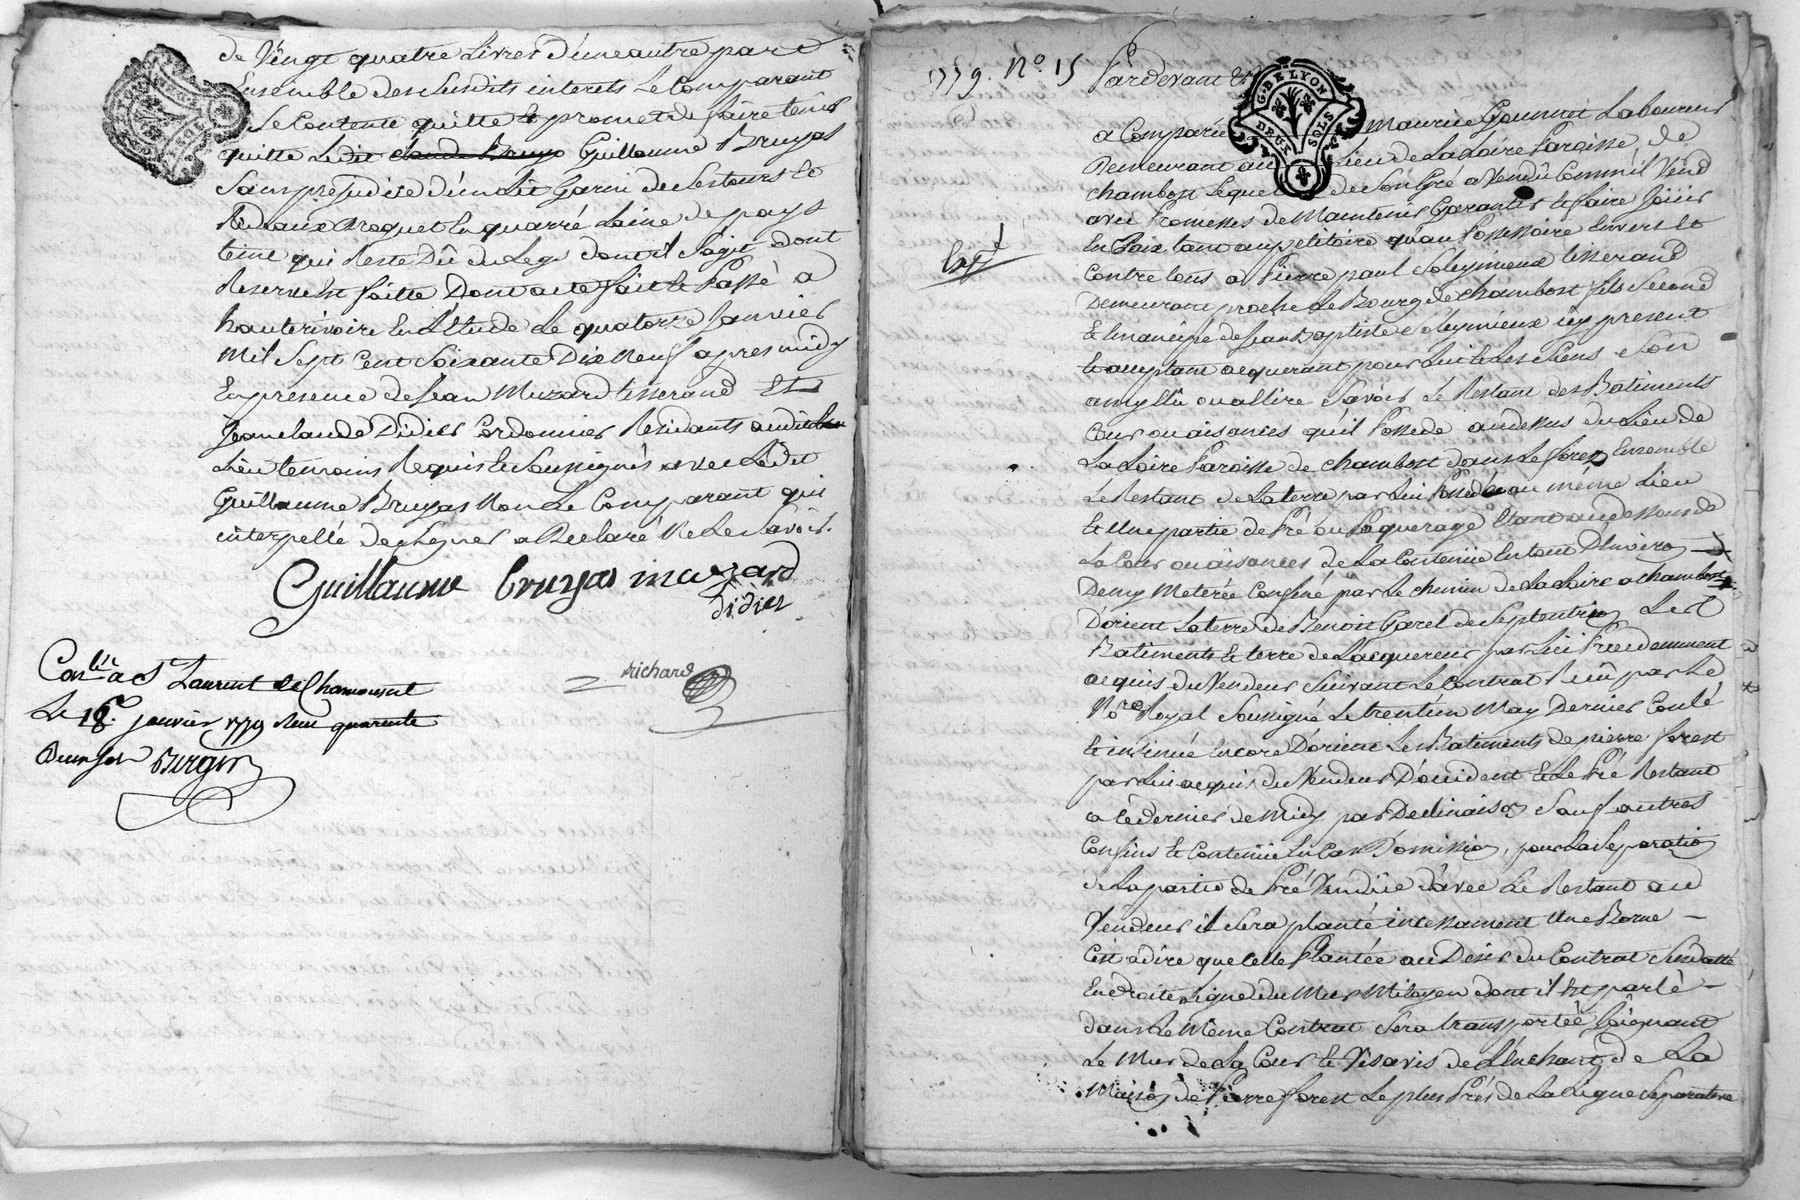 de Vingt quatre Livres d'une autre part
Ensemble des susdits interets Le Comparant
Se Contente quitte et promet de faire tenir
quitte Ledit Claude Bruyas Guillaume Bruyas
Sans prejudice d'un Lit Garni de Ses tours et
Rideaux en quarré Laine de pays
teint qui Reste Dû du Legs dont il s'agit dont
Reserve Est faitte Dont acte fait et Passé a
hauterivoire En L'Etude Le quatorze Janvier
Mil Sept Cent Soixante Dix Neuf apres midy
En presence de Jean Muzard tisserand Et
Jean claude Didier Cordonnier Residants audit Lieu
Lieu temoins Requis et Soussignés avec Ledit
Guillaume Bruyas Non Le Comparant qui
interpellé de Signer a Declaré Ne Le Savoir.
Guillaume bruyas muzard
didier
richard
Con.lé a St Laurent de Chamousset
Le 18.e janvier 1779 Reçu quarente
Deux sols Burgin
1779. No. 15 Pardevant
G. DE LYON
DEUX SOLS
a Comparû Maurice Gounnet Laboureur
Demeurant au Lieu de La Loire Paroisse de
chambost Lequel de Son Gré a Vendû Comme il Vend
avec Promesses de Maintenir Garantir et faire Jouir
En Paix tant au petitoire qu'au Possessoire Envers Et
Expd
Contre tous a Pierre paul Soleymieux tisserand
Demeurant proche Le Bourg de Chambost fils Second
Et Emancipé de Jean Baptiste Soleymieux icy present
Et acceptant acquerant pour Lui et Les Siens Son
amy Elû ou a Elire Savoir Le Restant des Batiments
Cour ou aisances qu'il Possede au dessus du Lieu de
La Loire Paroisse de chambost dans Le forez Ensemble
Le Restant de La terre par Lui Possedé au même Lieu
Et Une partie de Pré ou Paquerage Etant au dessous de
La Cour ou aisances de La Contenüe En tout D'Environ
Demy Meterée Confiné par Le chemin de La Loire a chambost
D'orient La terre de Benoit Garel de Septentrion Les
Batiments Et terre de L'acquereur par Lui Precedemment
acquis du Vendeur Suivant Le Contrat Reçû par Le
No.re Royal Soussigné Le trentun May Dernier Conlé
Et insinué Encore D'orient Les Batiments de pierre forest
par Lui acquis du Vendeur D'occident Et Le Pré Restant
a Ce dernier de Midy par Declinaison Sauf autres
Confins Et Contenüe En Cas D'omission, pour La Separation
de La partie de Pré Vendüe d'avec Le Restant au
Vendeur il Sera planté incessament Une Borne —
C'est a dire que Celle Plantée au Desir du Contrat Susdatté
En droite Ligne du Mur Mitoyen dont il Est parlé —
dans Le Même Contrat Sera transportée Joignant
Le Mur de La Cour Et Visavis de L'Enchant de La
Maison de Pierre forest Le plus Près de La Ligne Separative